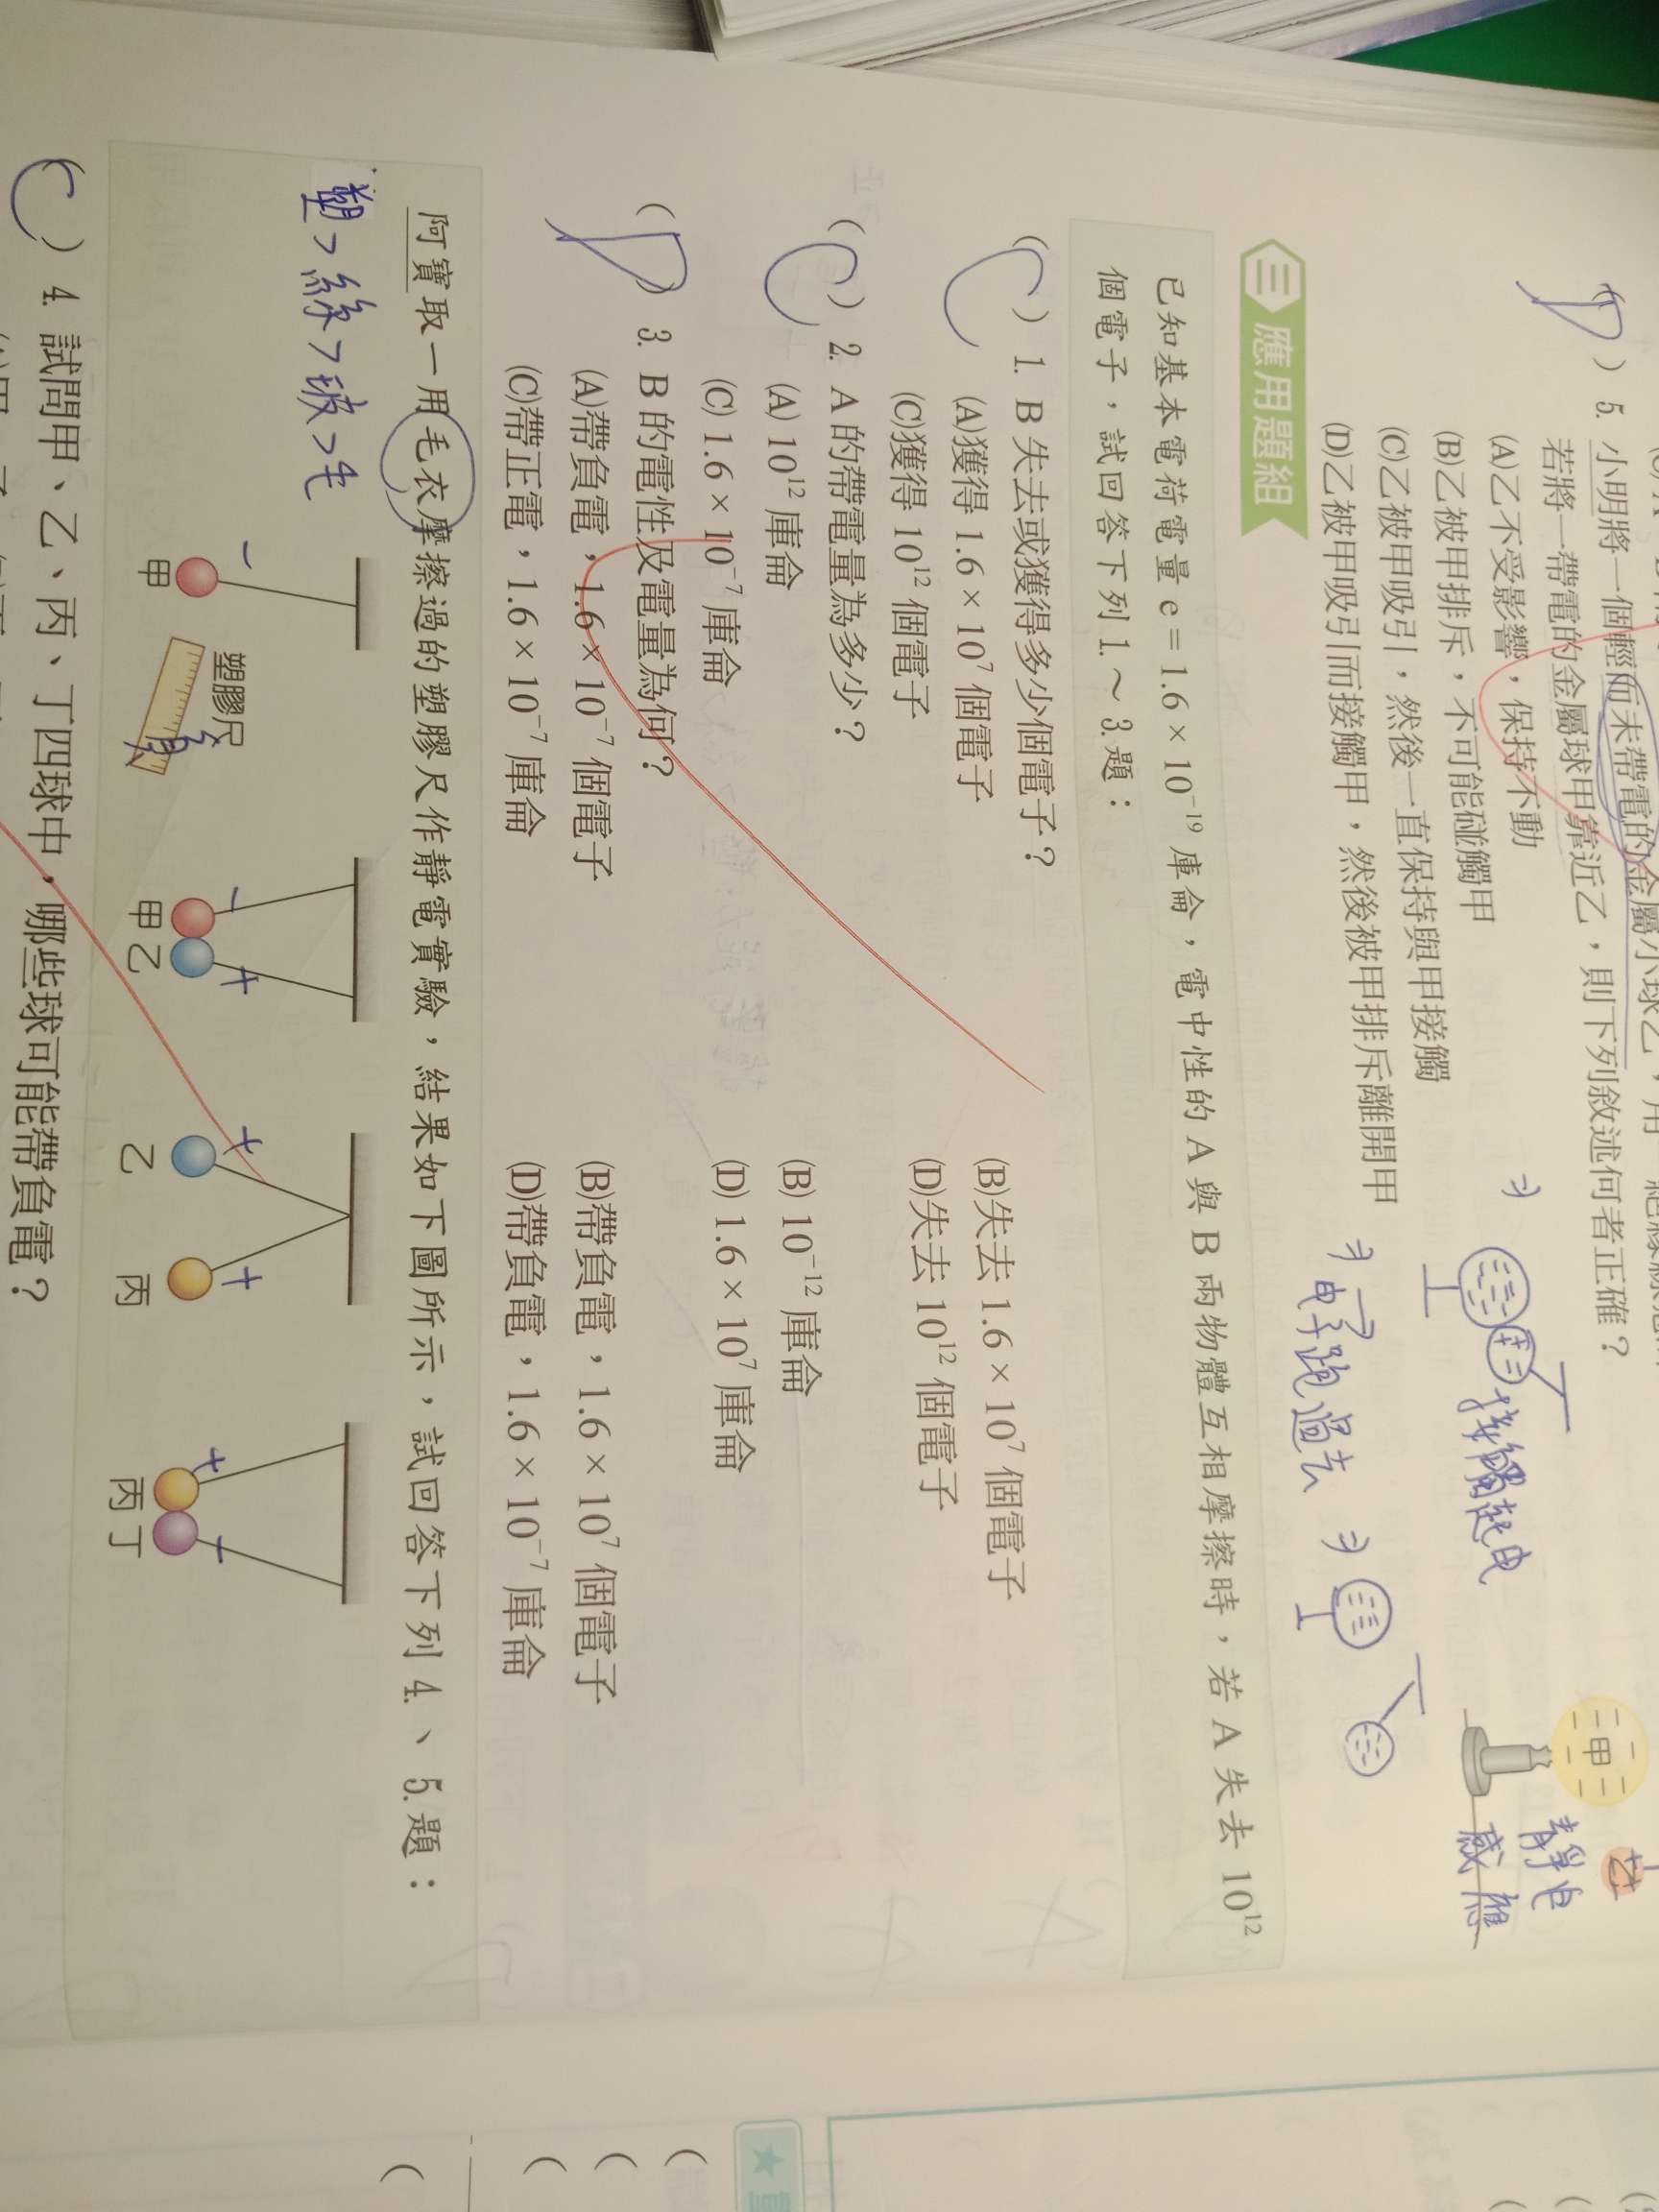 (D) 5. 小明將一個輕而未帶電的金屬小球乙，用一絕緣
若將一帶電的金屬球甲靠近乙，則下列敘述何者正確？
(A)乙不受影響，保持不動
(B)乙被甲排斥，不可能碰觸甲
(C)乙被甲吸引，然後一直保持與甲接觸
(D)乙被甲吸引而接觸甲，然後被甲排斥離開甲
甲
乙
靜电
感應
接觸起电
电子跑過去
三 應用題組
已知基本電荷電量 e = 1.6 × 10⁻¹⁹ 庫侖，電中性的 A 與 B 兩物體互相摩擦時，若 A 失去 10¹²
個電子，試回答下列 1. ~ 3.題：
(C) 1. B 失去或獲得多少個電子？
(A)獲得 1.6 × 10⁷ 個電子 (B)失去 1.6 × 10⁷ 個電子
(C)獲得 10¹² 個電子 (D)失去 10¹² 個電子
(C) 2. A 的帶電量為多少？
(A) 10¹² 庫侖 (B) 10⁻¹² 庫侖
(C) 1.6 × 10⁻⁷ 庫侖 (D) 1.6 × 10⁷ 庫侖
(D) 3. B 的電性及電量為何？
(A)帶負電，1.6 × 10⁻⁷ 個電子 (B)帶負電，1.6 × 10⁷ 個電子
(C)帶正電，1.6 × 10⁻⁷ 庫侖 (D)帶負電，1.6 × 10⁻⁷ 庫侖
阿寶取一用毛衣摩擦過的塑膠尺作靜電實驗，結果如下圖所示，試回答下列 4.、5.題：
塑 > 絲 > 玻 > 毛
塑膠尺
負
− − + + + + −
甲 甲 乙 乙 丙 丙 丁
(C) 4. 試問甲、乙、丙、丁四球中，哪些球可能帶負電？